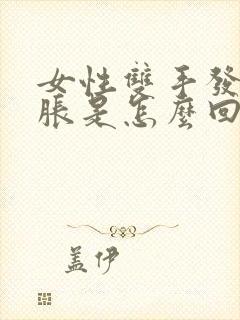 女性雙手發
脹是怎麼回
蓋伊